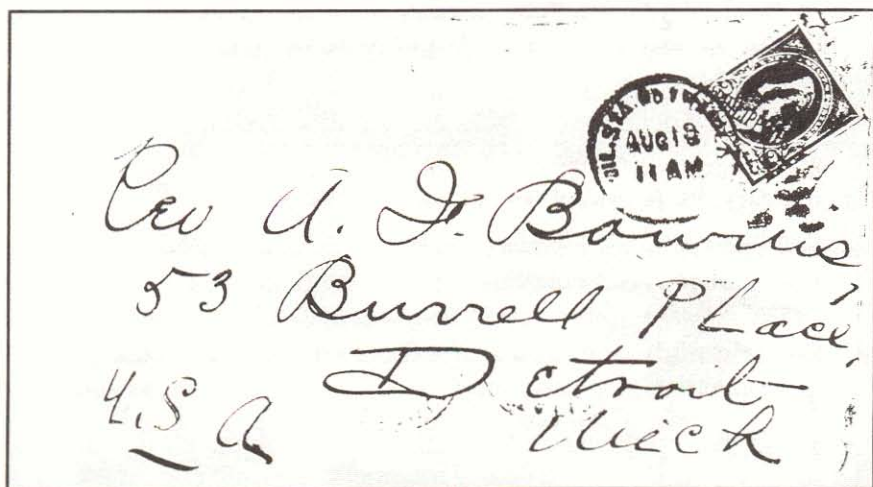 MIL. STA.
AUG 19
11 AM
Rev A. F. Bowrns,
53 Burrell Place,
Detroit
Mich
U.S A